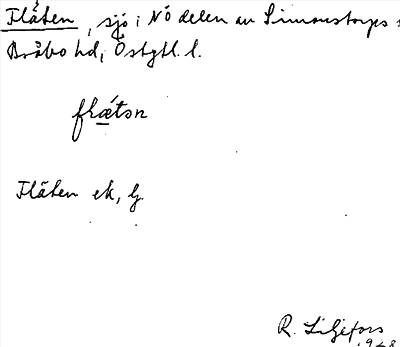 Flåten, sjö i NÖ delen av Simonstorps s
Bråbo hd, Östgtl. l.
flǽtən
Flåten ek, G
R. Liljefors
1948